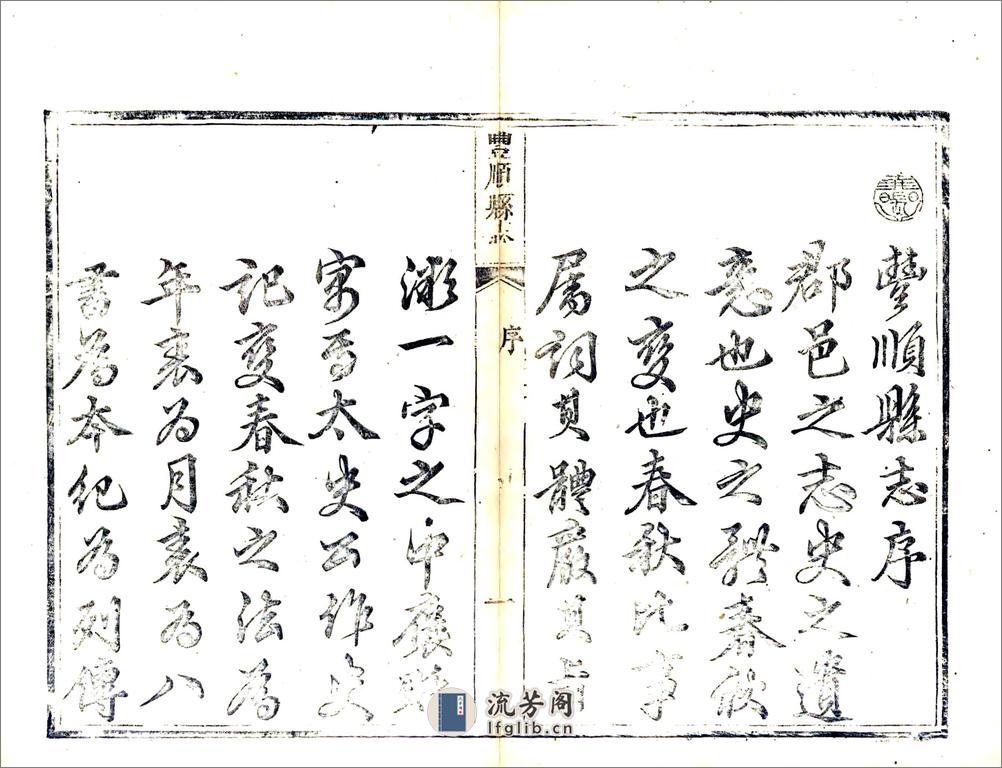 豐順縣志序
郡邑之志史之遺
意也史之體春秋
之變也春秋比事
属詞其體嚴其旨
微一字之中褒貶
寓焉太史公作史
記變春秋之法為
年表為月表為八
書為本紀為列傳
豐順縣志
序
一
流芳阁
lfglib.cn